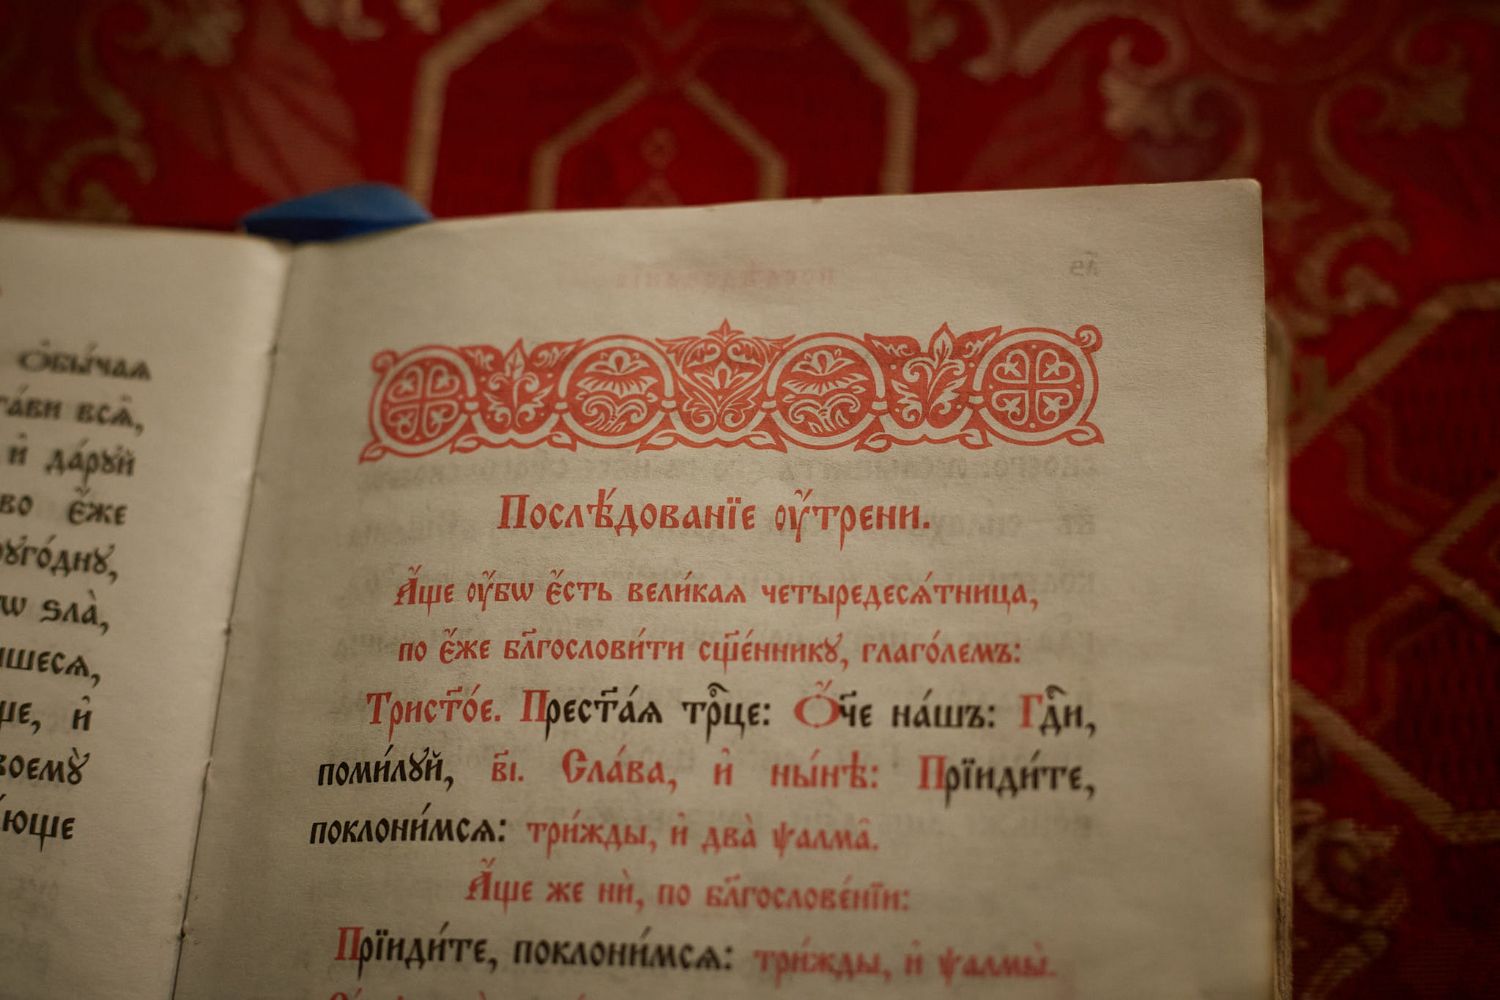 Ѻ҆бы́чаѧ
всѧ̑,
и҆ да́рꙋй
є҆́же
ѕла̀,
и҆
Послѣ́дованїе ᲂу҆́трени.
А҆́ще ᲂу҆́бѡ є҆́сть вели́каѧ четыредесѧ́тница,
по є҆́же бл҃гослови́ти сщ҃е́нникꙋ, глаго́лемъ:
Трист҃о́е. Прест҃а́ѧ трⷪ҇це: Ѻ҆́ч҃е на́шъ: Гдⷭ҇и,
поми́лꙋй, в҃і. Сла́ва, и҆ ны́нѣ: Прїиди́те,
поклони́мсѧ: три́жды, и҆ два̀ ѱалма̑.
А҆́ще же нѝ, по бл҃гослове́нїи:
Прїиди́те, поклони́мсѧ: три́жды, и҆ ѱалмы̀.